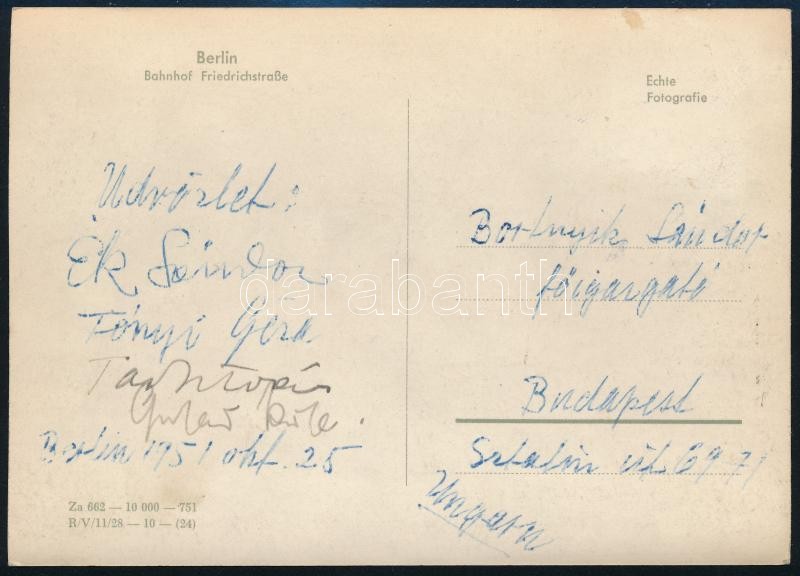 Berlin
Bahnhof Friedrichstraße
Echte
Fotografie
Üdvözlet:
Ék Sándor
Fónyi Géza
Berlin 1951 okt. 25
Za 662 — 10 000 — 751
R/V/11/28 — 10 — (24)
Bortnyik Sándor
főigazgató
Budapest
Sztalin út 69-71
Ungarn
darabanth